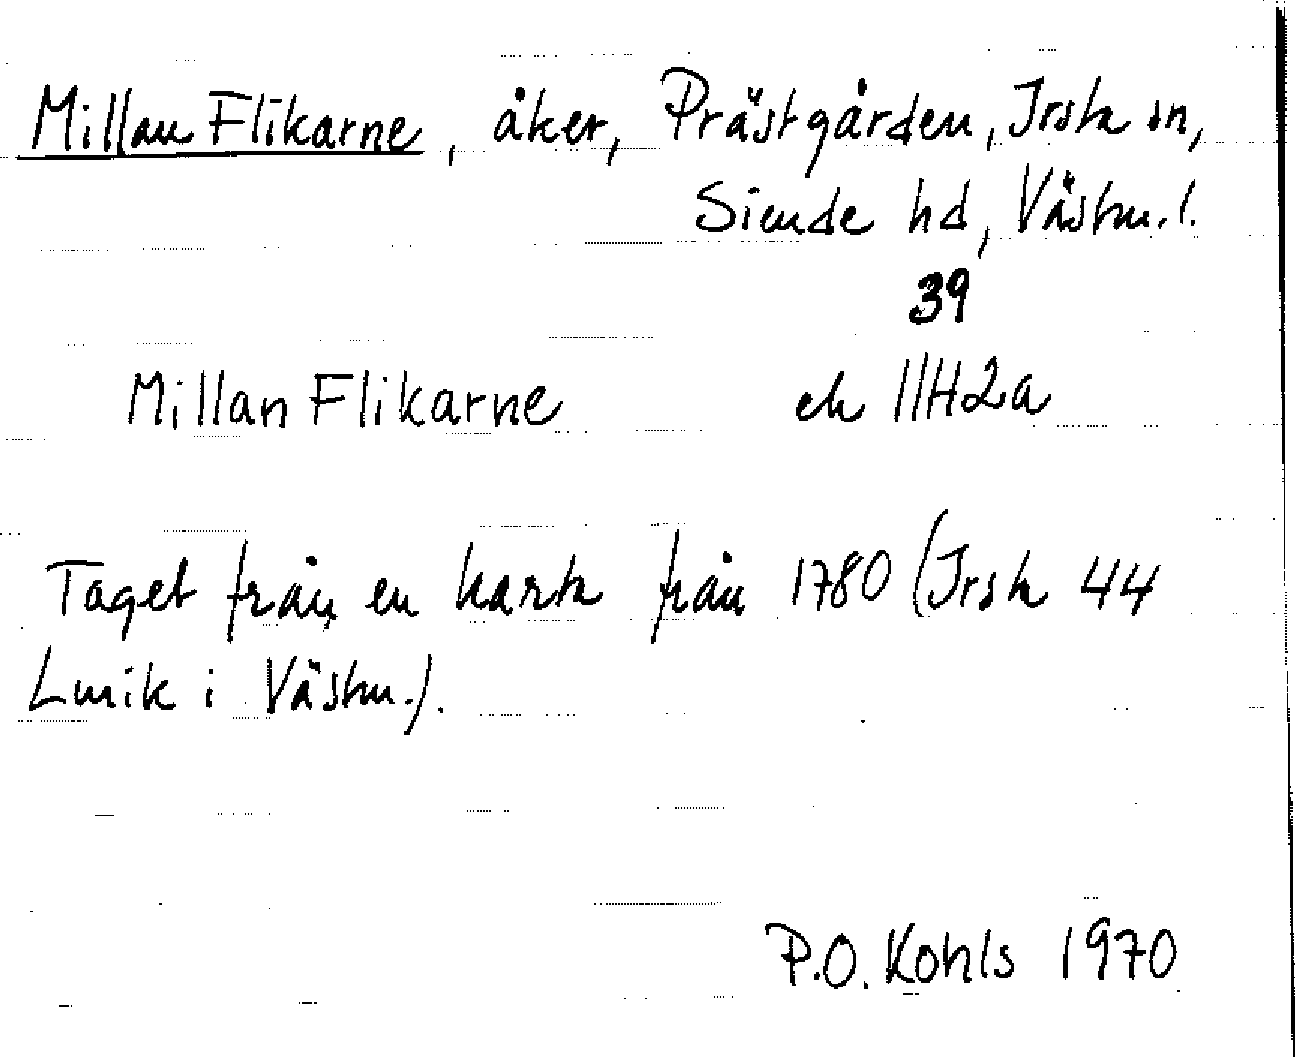 Millan Flikarne, åker, Prästgården, Irsta sn,
Siende hd, Västm. l.
39
Millan Flikarne ek 11H2a
Taget från en karta från 1780 (Irsta 44
Lmtk i Västm.).
P.O. Kohls 1970